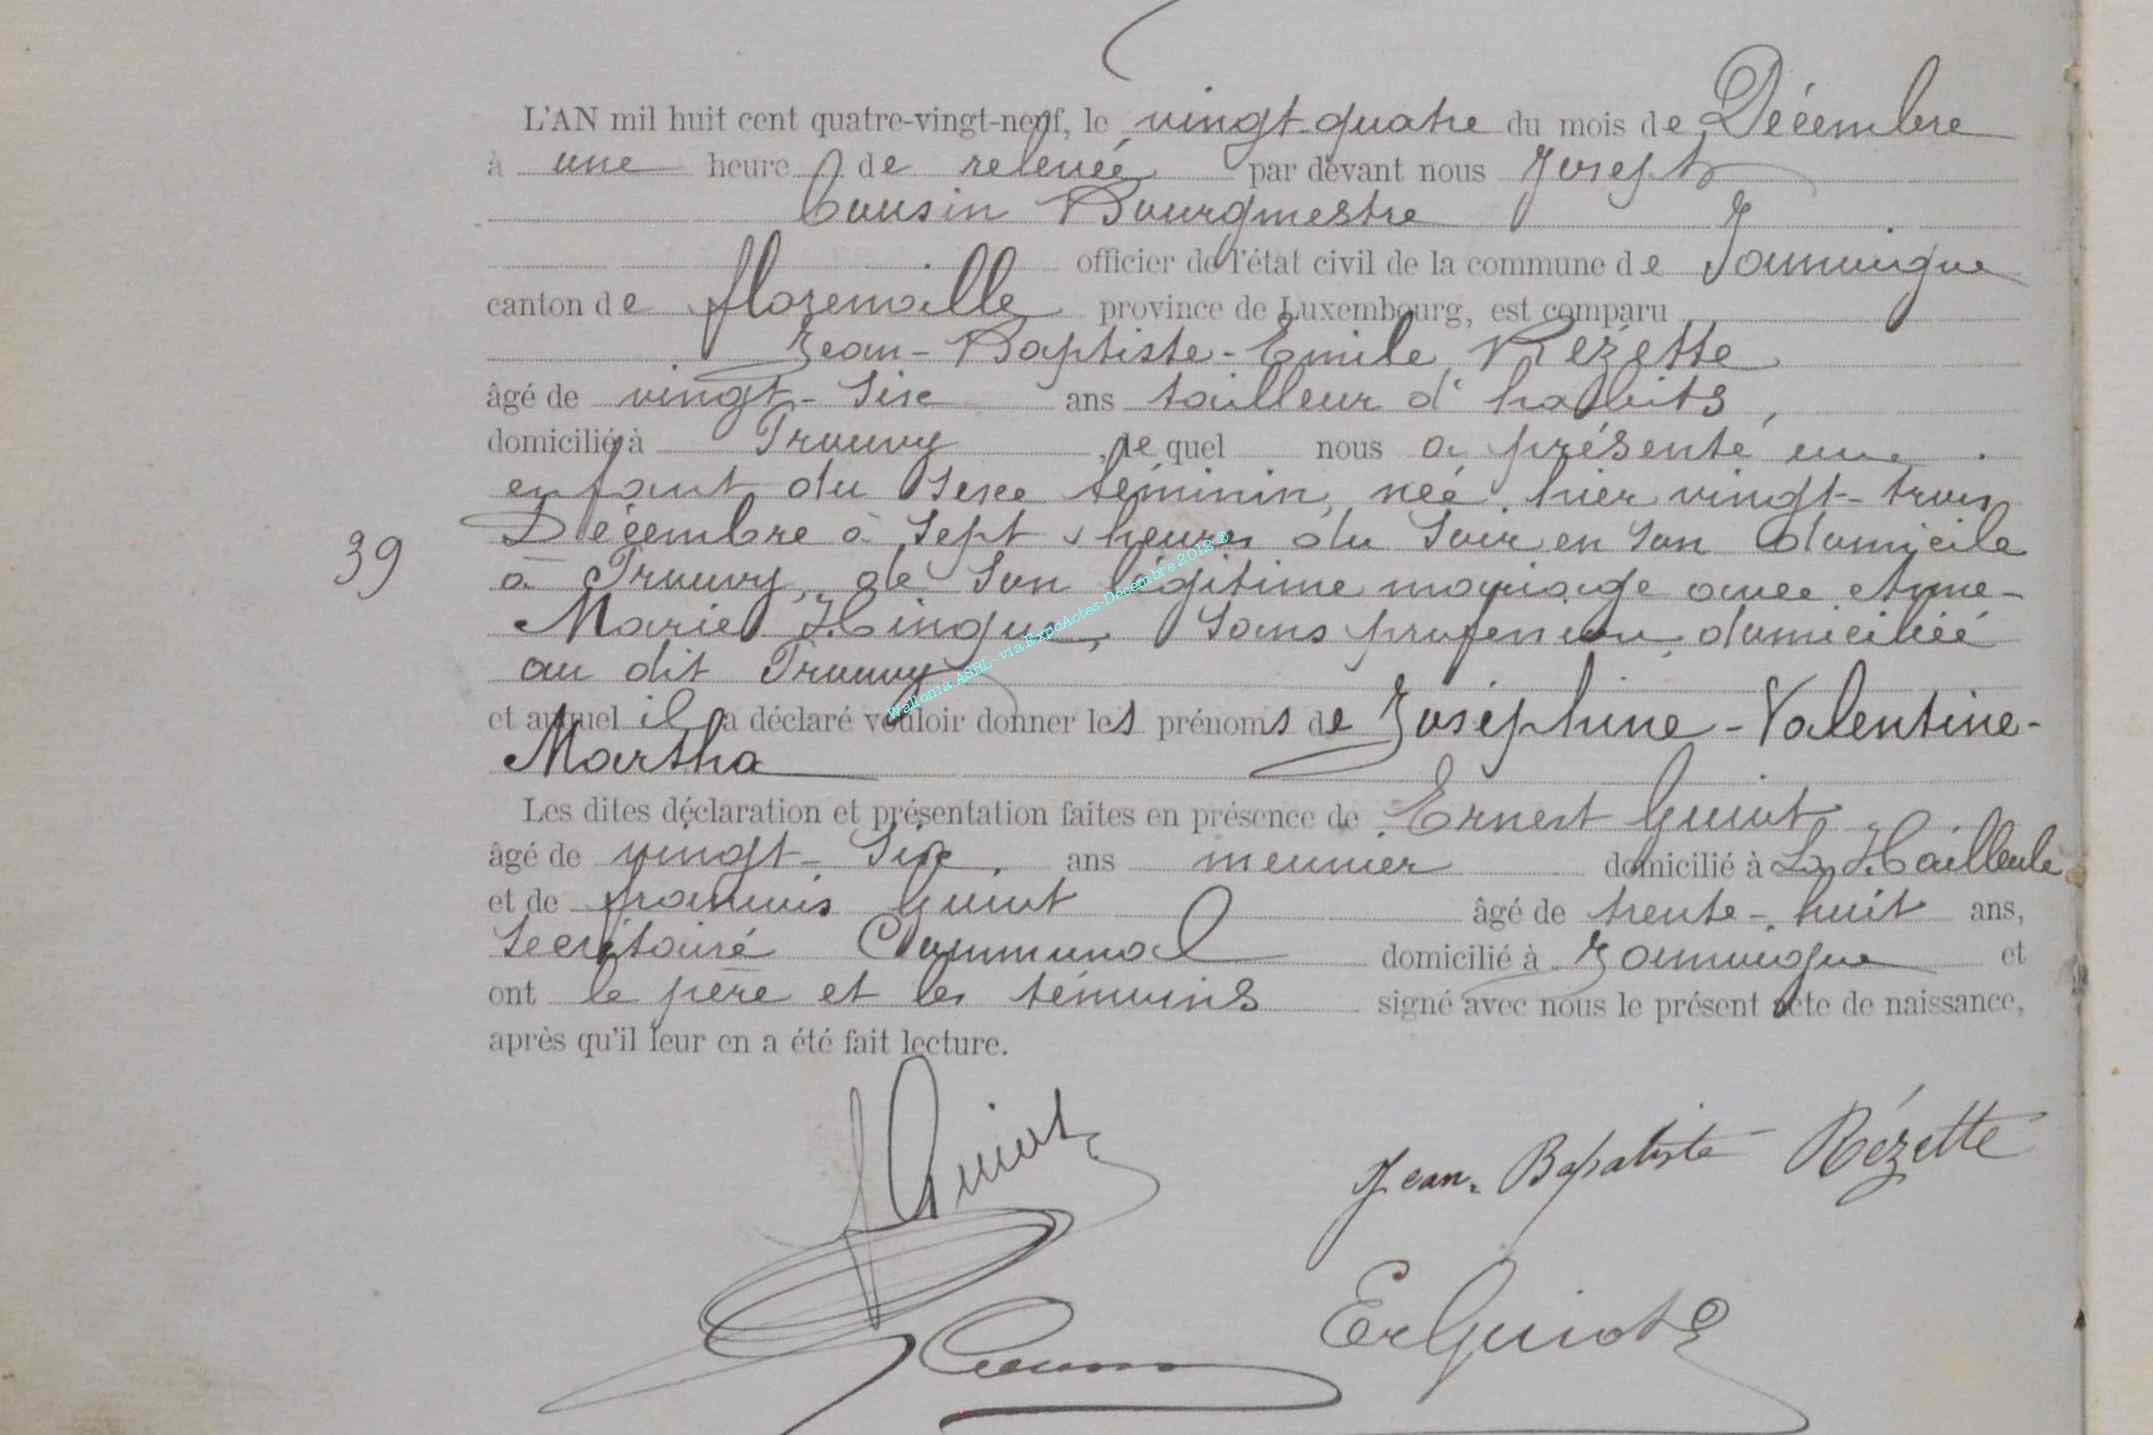 L'AN mil huit cent quatre-vingt-neuf, le vingt-quatre du mois de Décembre
à une heure de relevée par devant nous Joseph
Cousin Bourgmestre
officier de l'état civil de la commune de Jamoigne
canton de florenville province de Luxembourg, est comparu
Jean-Baptiste-Emile Rézette
âgé de vingt-six ans tailleur d'habits,
domicilié à Prouvy, le quel nous a présenté une
enfant du sexe féminin, née hier vingt-trois
Décembre à sept heures du soir en son domicile
39 à Prouvy, de son légitime mariage avec Anne-
Marie Hingue, sans profession domiciliée
au dit Prouvy
et auquel il a déclaré vouloir donner les prénoms de Joséphine-Valentine-
Martha
Les dites déclaration et présentation faites en présence de Ernest Guiot
âgé de vingt-six ans meunier domicilié à La Hailleule
et de francois Guiot âgé de trente-huit ans,
secrétaire Communal domicilié à Jamoigne et
ont le père et les témoins signé avec nous le présent acte de naissance,
après qu'il leur en a été fait lecture.
Wallonia ASBL - via ExpoActes-Décembre 2012
f Guiot
Jean-Bapatiste Rézette
Er Guiot